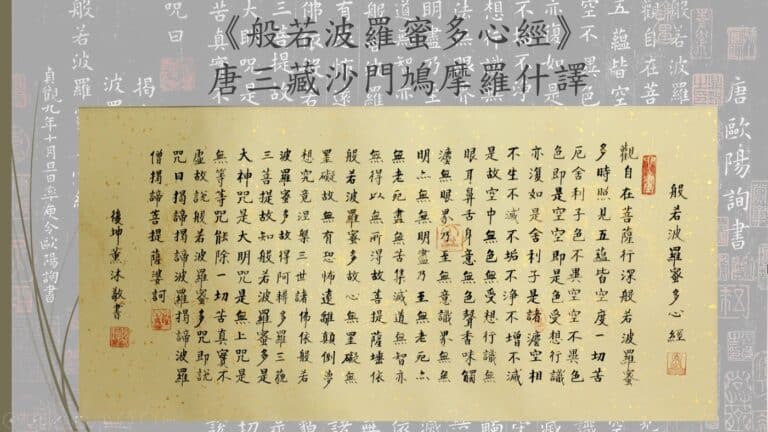 《般若波羅蜜多心經》
唐三藏沙門鳩摩羅什譯
唐歐陽詢書
般若波羅蜜多心經
觀自在菩薩行深般若波羅蜜
多時照見五蘊皆空度一切苦
厄舍利子色不異空空不異色
色即是空空即是色受想行識
亦復如是舍利子是諸灋空相
不生不滅不垢不淨不增不減
是故空中無色無受想行識無
眼耳鼻舌身意無色聲香味觸
灋無眼界乃至無意識界無無
明亦無無明盡乃至無老死亦
無老死盡無苦集滅道無智亦
無得以無所得故菩提薩埵依
般若波羅蜜多故心無罣礙無
罣礙故無有恐怖遠離顛倒夢
想究竟涅槃三世諸佛依般若
波羅蜜多故得阿耨多羅三藐
三菩提故知般若波羅蜜多是
大神咒是大明咒是無上咒是
無等等咒能除一切苦真實不
虛故說般若波羅蜜多咒即說
咒曰揭諦揭諦波羅揭諦波羅
僧揭諦菩提薩婆訶
坤薰沐敬書
貞觀九年十月旦日率更令歐陽詢書